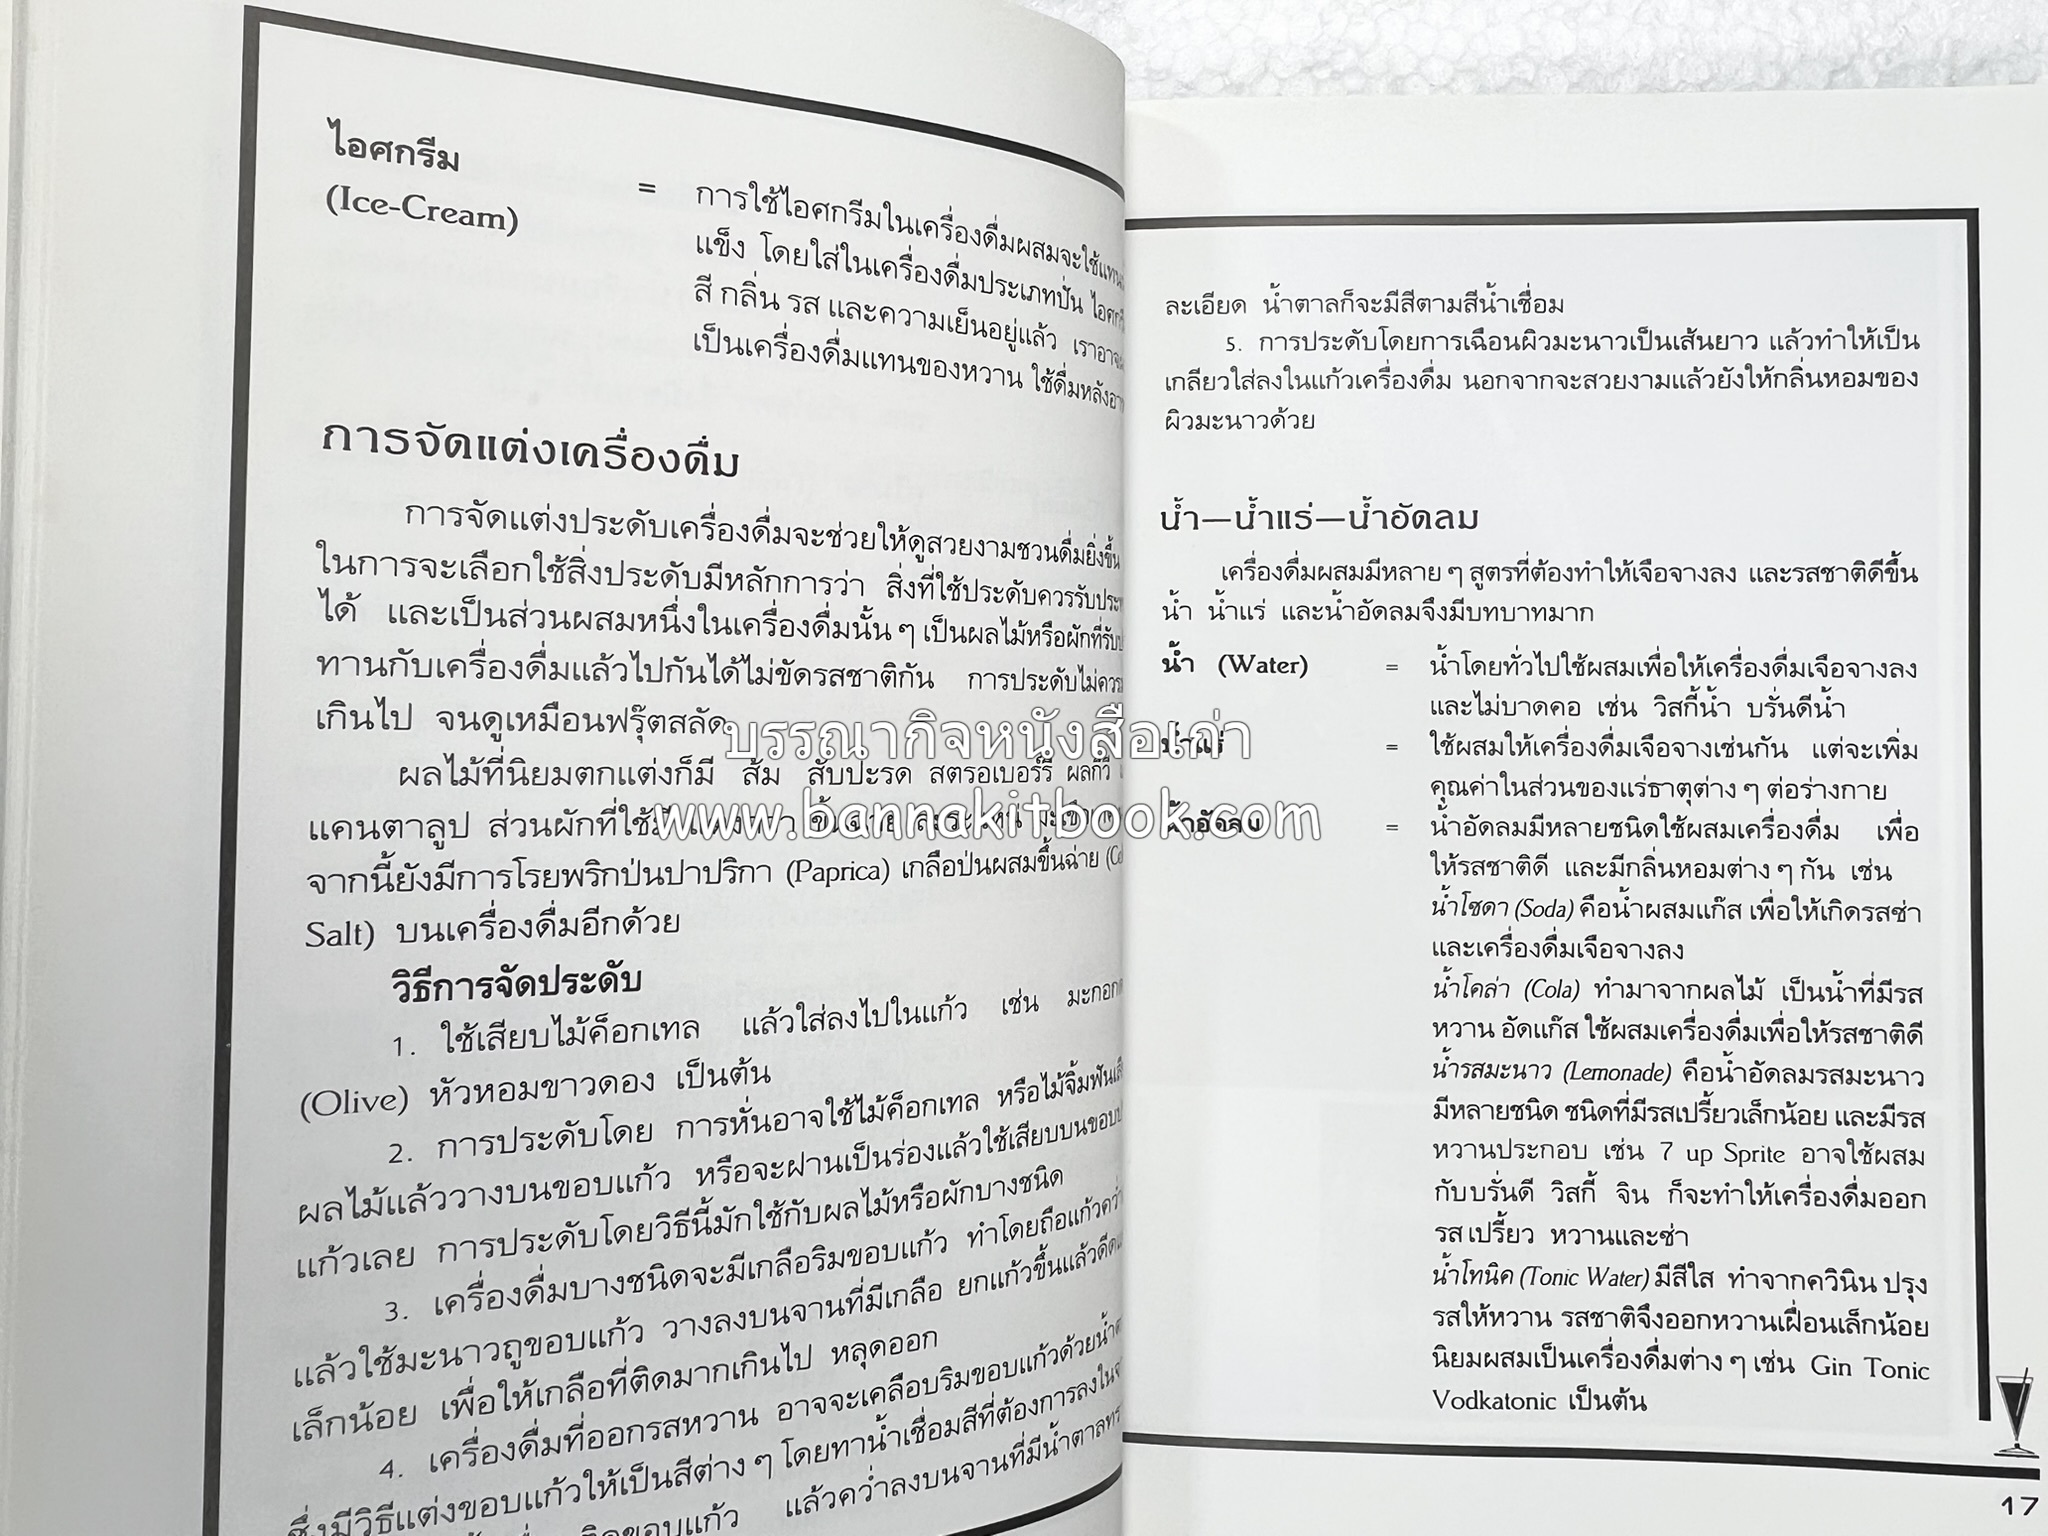 ไอศกรีม
(Ice-Cream)
= การใช้ไอศกรีมในเครื่องดื่มผสมจะใช้แทน
แข็ง โดยใส่ในเครื่องดื่มประเภทปั่น
สี กลิ่น รส และความเย็นอยู่แล้ว
เป็นเครื่องดื่มแทนของหวาน ใช้ดื่มหลัง
การจัดแต่งเครื่องดื่ม
การจัดแต่งประดับเครื่องดื่มจะช่วยให้ดูสวยงามชวนดื่มยิ่งขึ้น
ในการจะเลือกใช้สิ่งประดับมีหลักการว่า สิ่งที่ใช้ประดับควร
ได้ และเป็นส่วนผสมหนึ่งในเครื่องดื่มนั้น ๆ เป็นผลไม้หรือผักที่
ทานกับเครื่องดื่มแล้วไปกันได้ไม่ขัดรสชาติกัน การประดับไม่ควร
เกินไป จนดูเหมือนฟรุ๊ตสลัด
ผลไม้ที่นิยมตกแต่งก็มี ส้ม สับปะรด สตรอเบอร์รี่ ผลกีวี
แคนตาลูป ส่วนผักที่ใช้มี
จากนี้ยังมีการโรยพริกป่นปาปริกา (Paprica) เกลือป่นผสมขึ้นฉ่าย
Salt) บนเครื่องดื่มอีกด้วย
วิธีการจัดประดับ
1. ใช้เสียบไม้ค็อกเทล แล้วใส่ลงไปในแก้ว เช่น
(Olive) หัวหอมขาวดอง เป็นต้น
2. การประดับโดย การหั่นอาจใช้ไม้ค็อกเทล หรือไม้จิ้มฟัน
ผลไม้แล้ววางบนขอบแก้ว หรือจะฝานเป็นร่องแล้วใช้เสียบบนขอบ
แก้วเลย การประดับโดยวิธีนี้มักใช้กับผลไม้หรือผักบางชนิด
3. เครื่องดื่มบางชนิดจะมีเกลือริมขอบแก้ว ทำโดยถือแก้วคว่ำ
แล้วใช้มะนาวถูขอบแก้ว วางลงบนจานที่มีเกลือ ยกแก้วขึ้นแล้วดีด
เล็กน้อย เพื่อให้เกลือที่ติดมากเกินไป หลุดออก
4. เครื่องดื่มที่ออกรสหวาน อาจจะเคลือบริมขอบแก้วด้วย
ซึ่งมีวิธีแต่งขอบแก้วให้เป็นสีต่าง ๆ โดยทาน้ำเชื่อมสีที่ต้องการลงใน
ขอบแก้ว แล้วคว่ำลงบนจานที่มีน้ำตาล
ละเอียด น้ำตาลก็จะมีสีตามสีน้ำเชื่อม
5. การประดับโดยการเฉือนผิวมะนาวเป็นเส้นยาว แล้วทำให้เป็น
เกลียวใส่ลงในแก้วเครื่องดื่ม นอกจากจะสวยงามแล้วยังให้กลิ่นหอมของ
ผิวมะนาวด้วย
น้ำ—น้ำแร่—น้ำอัดลม
เครื่องดื่มผสมมีหลาย ๆ สูตรที่ต้องทำให้เจือจางลง และรสชาติดีขึ้น
น้ำ น้ำแร่ และน้ำอัดลมจึงมีบทบาทมาก
น้ำ (Water) = น้ำโดยทั่วไปใช้ผสมเพื่อให้เครื่องดื่มเจือจางลง
และไม่บาดคอ เช่น วิสกี้น้ำ บรั่นดีน้ำ
น้ำแร่ = ใช้ผสมให้เครื่องดื่มเจือจางเช่นกัน แต่จะเพิ่ม
คุณค่าในส่วนของแร่ธาตุต่าง ๆ ต่อร่างกาย
น้ำอัดลม = น้ำอัดลมมีหลายชนิดใช้ผสมเครื่องดื่ม เพื่อ
ให้รสชาติดี และมีกลิ่นหอมต่าง ๆ กัน เช่น
น้ำโซดา (Soda) คือน้ำผสมแก๊ส เพื่อให้เกิดรสซ่า
และเครื่องดื่มเจือจางลง
น้ำโคล่า (Cola) ทำมาจากผลไม้ เป็นน้ำที่มีรส
หวาน อัดแก๊ส ใช้ผสมเครื่องดื่มเพื่อให้รสชาติดี
น้ำรสมะนาว (Lemonade) คือน้ำอัดลมรสมะนาว
มีหลายชนิด ชนิดที่มีรสเปรี้ยวเล็กน้อย และมีรส
หวานประกอบ เช่น 7 up Sprite อาจใช้ผสม
กับบรั่นดี วิสกี้ จิน ก็จะทำให้เครื่องดื่มออก
รสเปรี้ยว หวานและซ่า
น้ำโทนิค (Tonic Water) มีสีใส ทำจากควินิน ปรุง
รสให้หวาน รสชาติจึงออกหวานเฝื่อนเล็กน้อย
นิยมผสมเป็นเครื่องดื่มต่าง ๆ เช่น Gin Tonic
Vodkatonic เป็นต้น
17
บรรณากิจหนังสือเก่า
www.bannakitbook.com